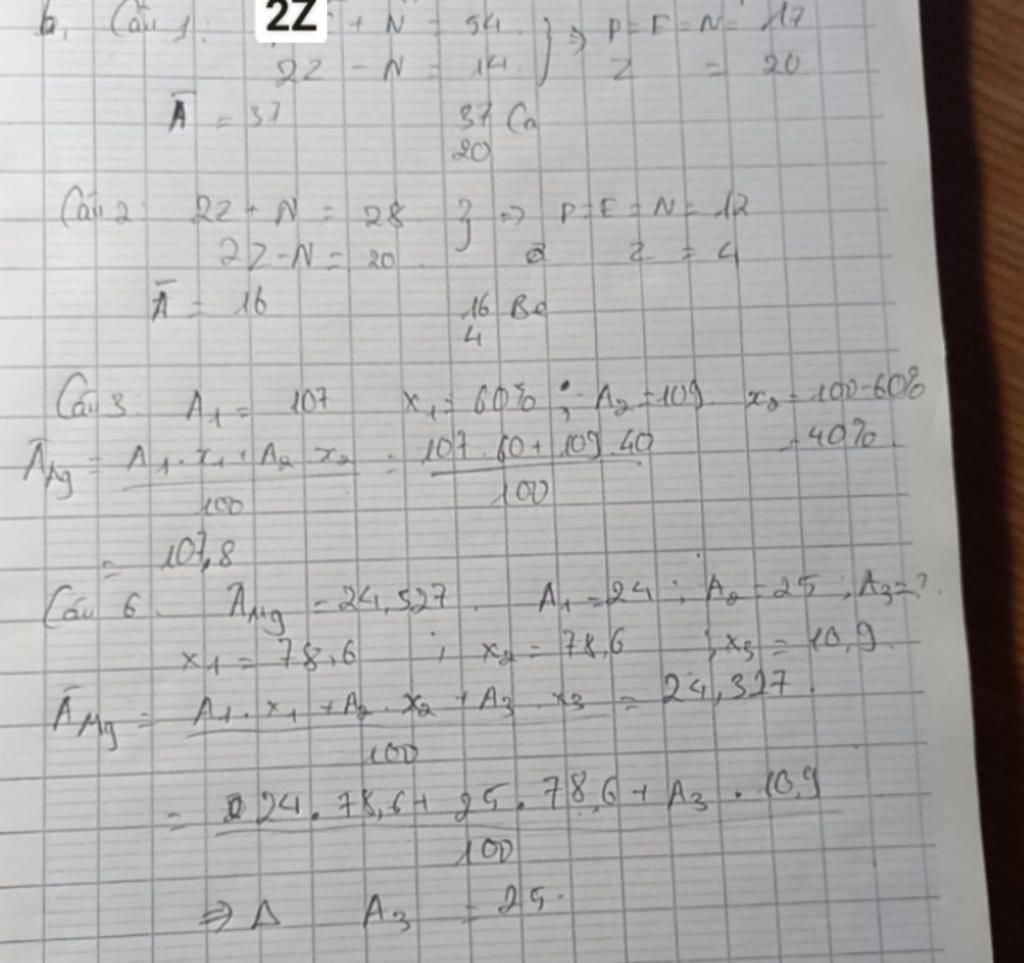 b, Câu 1: 2Z + N = 54 } => P = E = N = 17
2Z - N = 14 Z = 20
A = 37 37 Ca
20
Câu 2 2Z + N = 28 } => P = E = N = 12
2Z - N = 20 Z = 4
A = 16 16 Be
4
Câu 3 A1 = 107 x1 = 60% ; A2 = 109 x2 = 100-60%
= 40%
AAg = A1 . x1 + A2 . x2 / 100 = 107 . 60 + 109 . 40 / 100
= 107,8
Câu 6. AMg = 24,327 . A1 = 24 ; A2 = 25 ; A3 = ?
x1 = 78,6 ; x2 = 78,6 ; x3 = 10,9
AMg = A1 . x1 + A2 . x2 + A3 . x3 / 100 = 24,327
= 24 . 78,6 + 25 . 78,6 + A3 . 10,9 / 100
=> A A3 = 25.